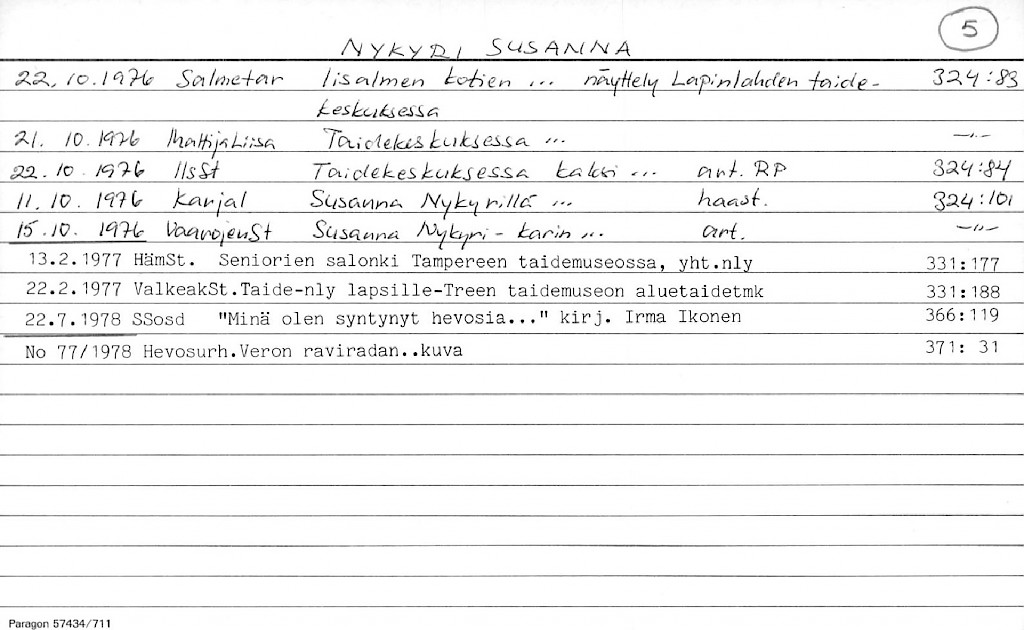 5
NYKYRI SUSANNA
22.10.1976 Salmetar Iisalmen kotien ... näyttely Lapinlahden taide- 324:83
keskuksessa
21. 10. 1976 MattijaLiisa Taidekeskuksessa ... —"—
22. 10. 1976 IlsSt Taidekeskuksessa kaksi ... art. RP 324:84
11. 10. 1976 Karjal Susanna Nykyrillä ... haast. 324:101
15.10. 1976 VaarojenSt Susanna Nykyri-Karin ... art. —"—
13.2.1977 HämSt. Seniorien salonki Tampereen taidemuseossa, yht.nly 331:177
22.2.1977 ValkeakSt.Taide-nly lapsille-Treen taidemuseon aluetaidetmk 331:188
22.7.1978 SSosd "Minä olen syntynyt hevosia..." kirj. Irma Ikonen 366:119
No 77/1978 Hevosurh.Veron raviradan..kuva 371: 31
Paragon 57434/711